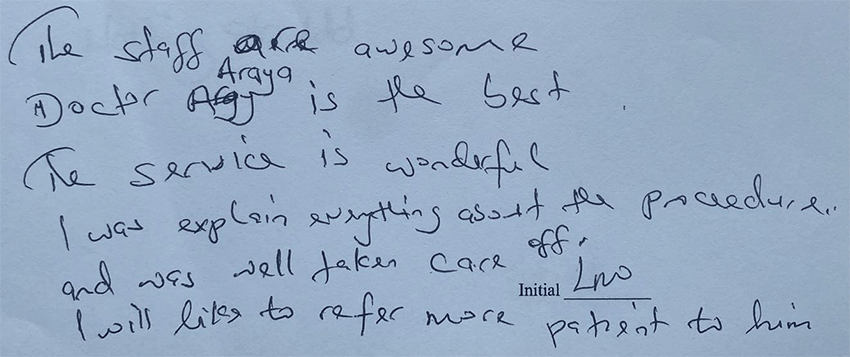 The staff are awesome
Doctor Araya is the best.
The service is wonderful
I was explain everything about the procedure..
and was well taken care off.
Initial LMO
I will like to refer more patient to him